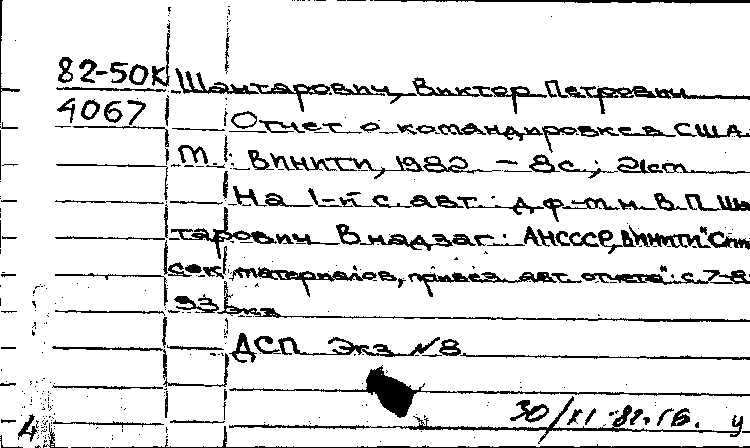 82-50К Шантарович, Виктор Петрович
4067 Отчет о командировке в США.
М.: ВИНИТИ, 1982. - 8 с.; 21 см.
На 1-й с. авт.: д.ф.-м.н. В.П. Шан
тарович. В надзаг.: АНСССР, ВИНИТИ. "Спи
сок материалов, привез. авт. отчета": с. 7-8
93 экз
ДСП Экз №8
30/XI-82г.
4 у